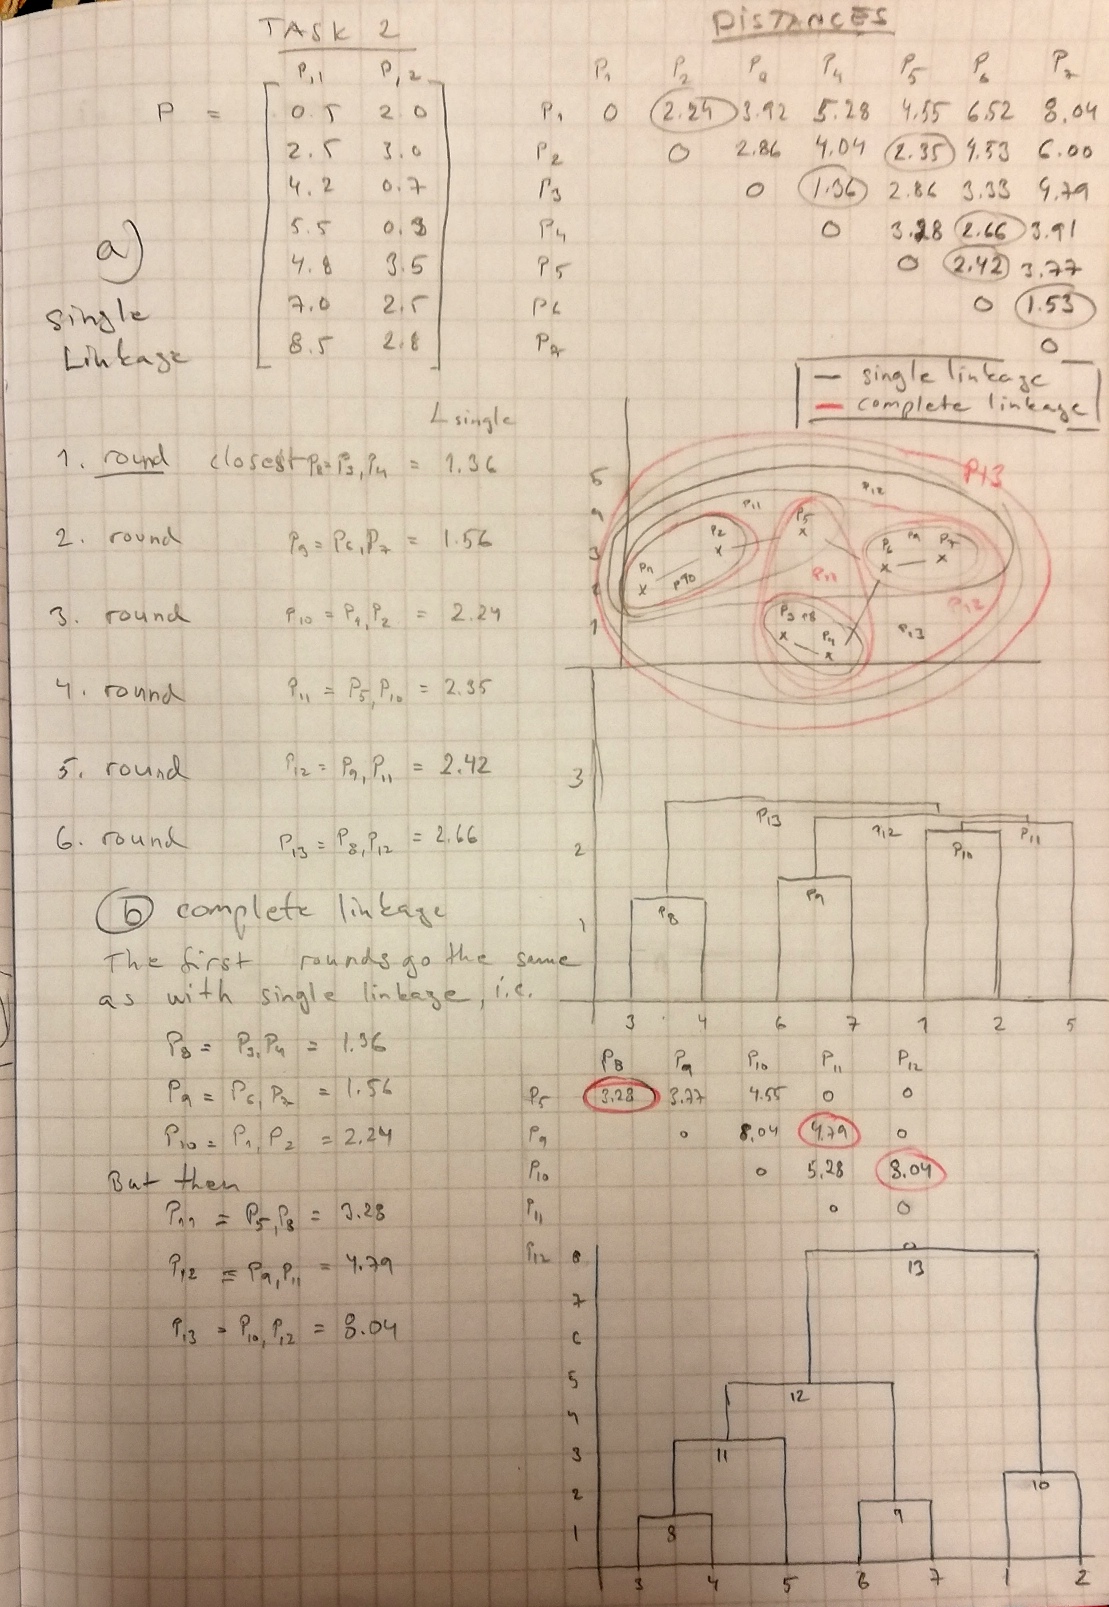 TASK 2
DISTANCES
P,1 P,2
P =
0.5 2.0
2.5 3.0
4.2 0.7
5.5 0.3
4.8 3.5
7.0 2.5
8.5 2.8
P1 P2 P3 P4 P5 P6 P7
P1 0 2.24 3.92 5.28 4.55 6.52 8.04
P2 0 2.86 4.04 2.35 4.53 6.00
P3 0 1.36 2.86 3.33 4.79
P4 0 3.28 2.66 3.91
P5 0 2.42 3.77
P6 0 1.53
P7 0
a)
single
Linkage
— single linkage
— complete linkage
L single
1. round closest P8=P3,P4 = 1.36
2. round P9 = P6,P7 = 1.56
3. round P10 = P1,P2 = 2.24
4. round P11 = P5,P10 = 2.35
5. round P12 = P9,P11 = 2.42
6. round P13 = P8,P12 = 2.66
5
4
3
2
1
P13
P12
P11
P5
P2
P1
P10
P6 P9 P7
P11
P12
P3 P8
P4
P13
3
2
1
P13
P12
P11
P10
P9
P8
3 4 6 7 1 2 5
b) complete linkage
The first rounds go the same
as with single linkage, i.e.
P8 = P3,P4 = 1.36
P9 = P6,P7 = 1.56
P10 = P1,P2 = 2.24
But then
P11 = P5,P8 = 3.28
P12 = P9,P11 = 4.79
P13 = P10,P12 = 8.04
P8 P9 P10 P11 P12
P5 3.28 3.77 4.55 0 0
P9 0 8.04 4.79 0
P10 0 5.28 8.04
P11 0 0
P12 0
8
7
6
5
4
3
2
1
13
12
11
10
9
8
3 4 5 6 7 1 2